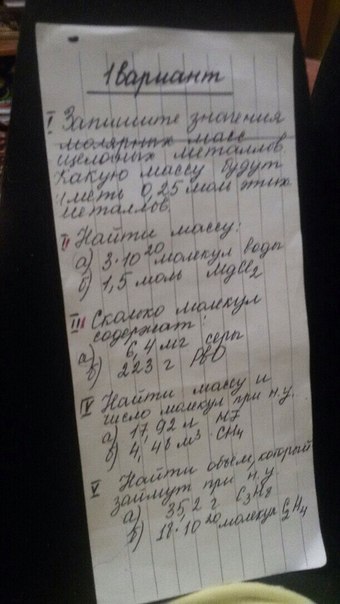 1 вариант
I Запишите значения
молярных масс
щелочных металлов.
Какую массу будут
иметь 0,25 моль этих
металлов.
II Найти массу:
а) 3·10²⁰ молекул воды
б) 1,5 моль MgCl₂
III Сколько молекул
содержат:
а) 6,4 мг серы
б) 223 г PbO
IV Найти массу и
число молекул при н.у.
а) 17,92 л
б) 4,48 м³ CH₄
V Найти объем, который
займут при н.у.
а) 352 г C₃H₈
б) 18·10²⁰ молекул C₂H₄